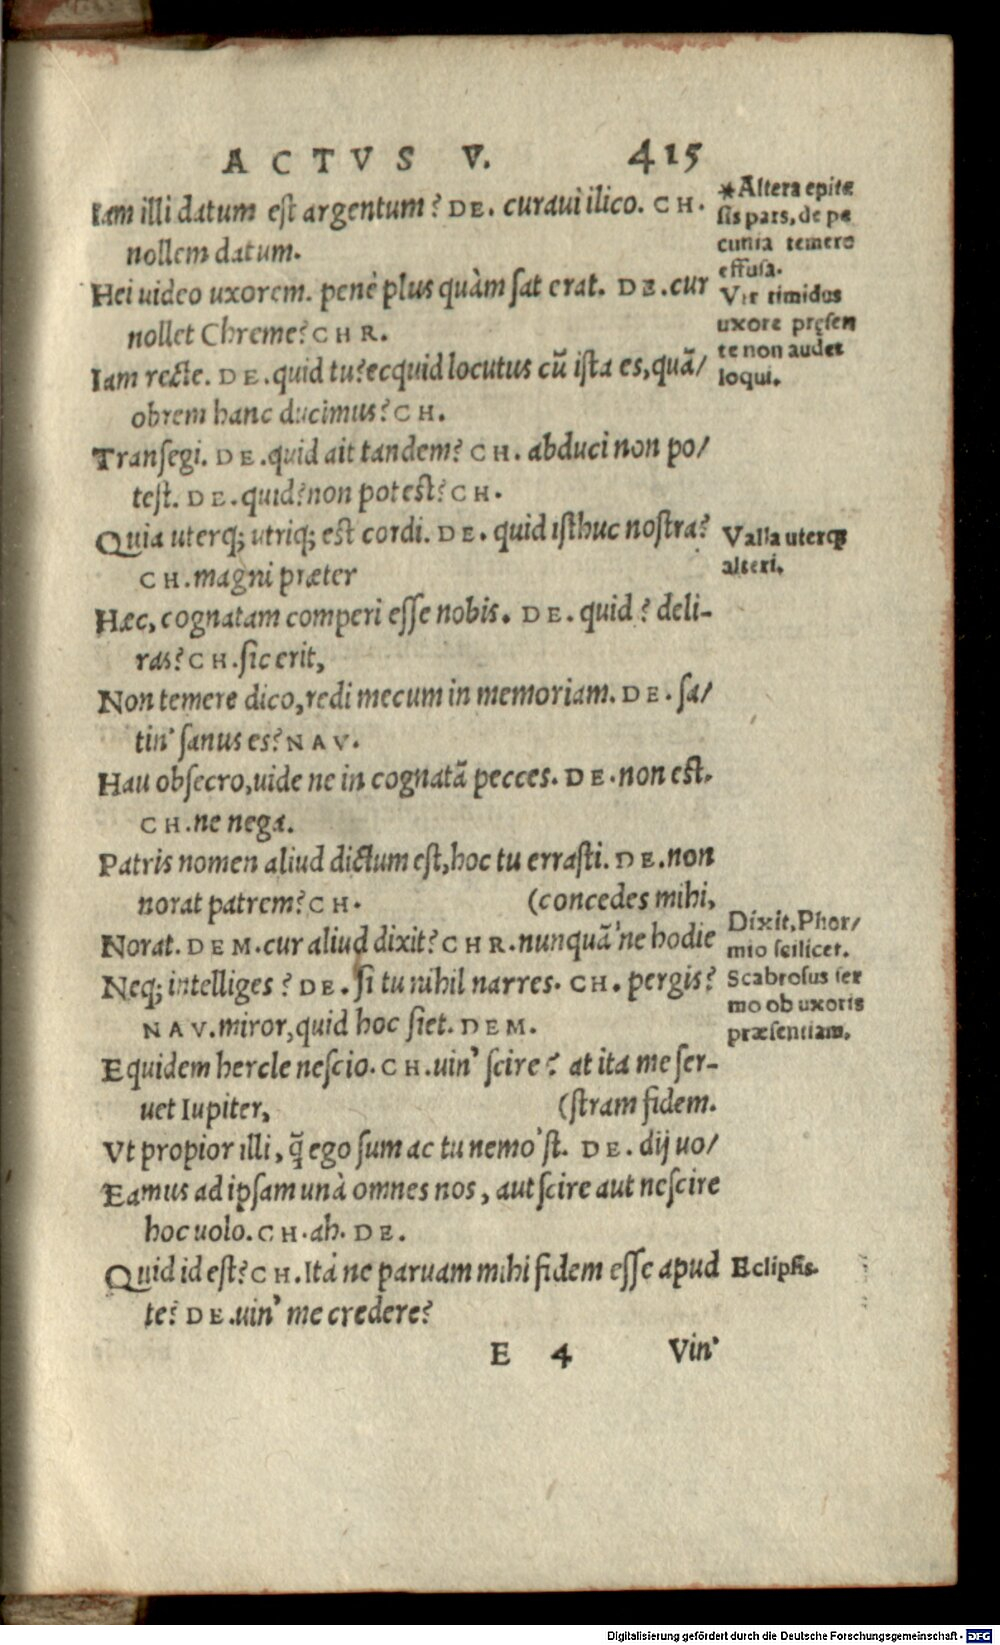 ACTVS V. 415
Iam illi datum est argentum? DE. curaui ilico. CH.
nollem datum.
Hei uideo uxorem. penè plus quàm sat erat. DE. cur
nollet Chreme? CHR.
Iam recte. DE. quid tu? ecquid locutus cũ ista es, quã/
obrem hanc ducimus? CH.
Transegi. DE. quid ait tandem? CH. abduci non po/
test. DE. quid? non potest? CH.
Quia uterq; utriq; est cordi. DE. quid isthuc nostra?
CH. magni præter
Hæc, cognatam comperi esse nobis. DE. quid? deli-
ras? CH. sic erit,
Non temere dico, redi mecum in memoriam. DE. sa/
tin' sanus es? NAV.
Hau obsecro, uide ne in cognatã pecces. DE. non est.
CH. ne nega.
Patris nomen aliud dictum est, hoc tu errasti. DE. non
norat patrem? CH. (concedes mihi,
Norat. DEM. cur aliud dixit? CHR. nunquã'ne hodie
Neq; intelliges? DE. si tu nihil narres. CH. pergis?
NAV. miror, quid hoc siet. DEM.
Equidem hercle nescio. CH. uin' scire? at ita me ser-
uet Iupiter, (stram fidem.
Vt propior illi, q̃ ego sum ac tu nemo'st. DE. dij uo/
Eamus ad ipsam unà omnes nos, aut scire aut nescire
hoc uolo. CH. ah. DE.
Quid id est? CH. Ita ne paruam mihi fidem esse apud
te? DE. uin' me credere?
E 4 Vin'
*Altera epitæ
sis pars, de pe
cunia temere
effusa.
Vir timidus
uxore pręsen
te non audet
loqui.
Valla uterq;
alteri.
Dixit, Phor/
mio scilicet.
Scabrosus ser
mo ob uxoris
præsentiam.
Eclipsis.
Digitalisierung gefördert durch die Deutsche Forschungsgemeinschaft - DFG